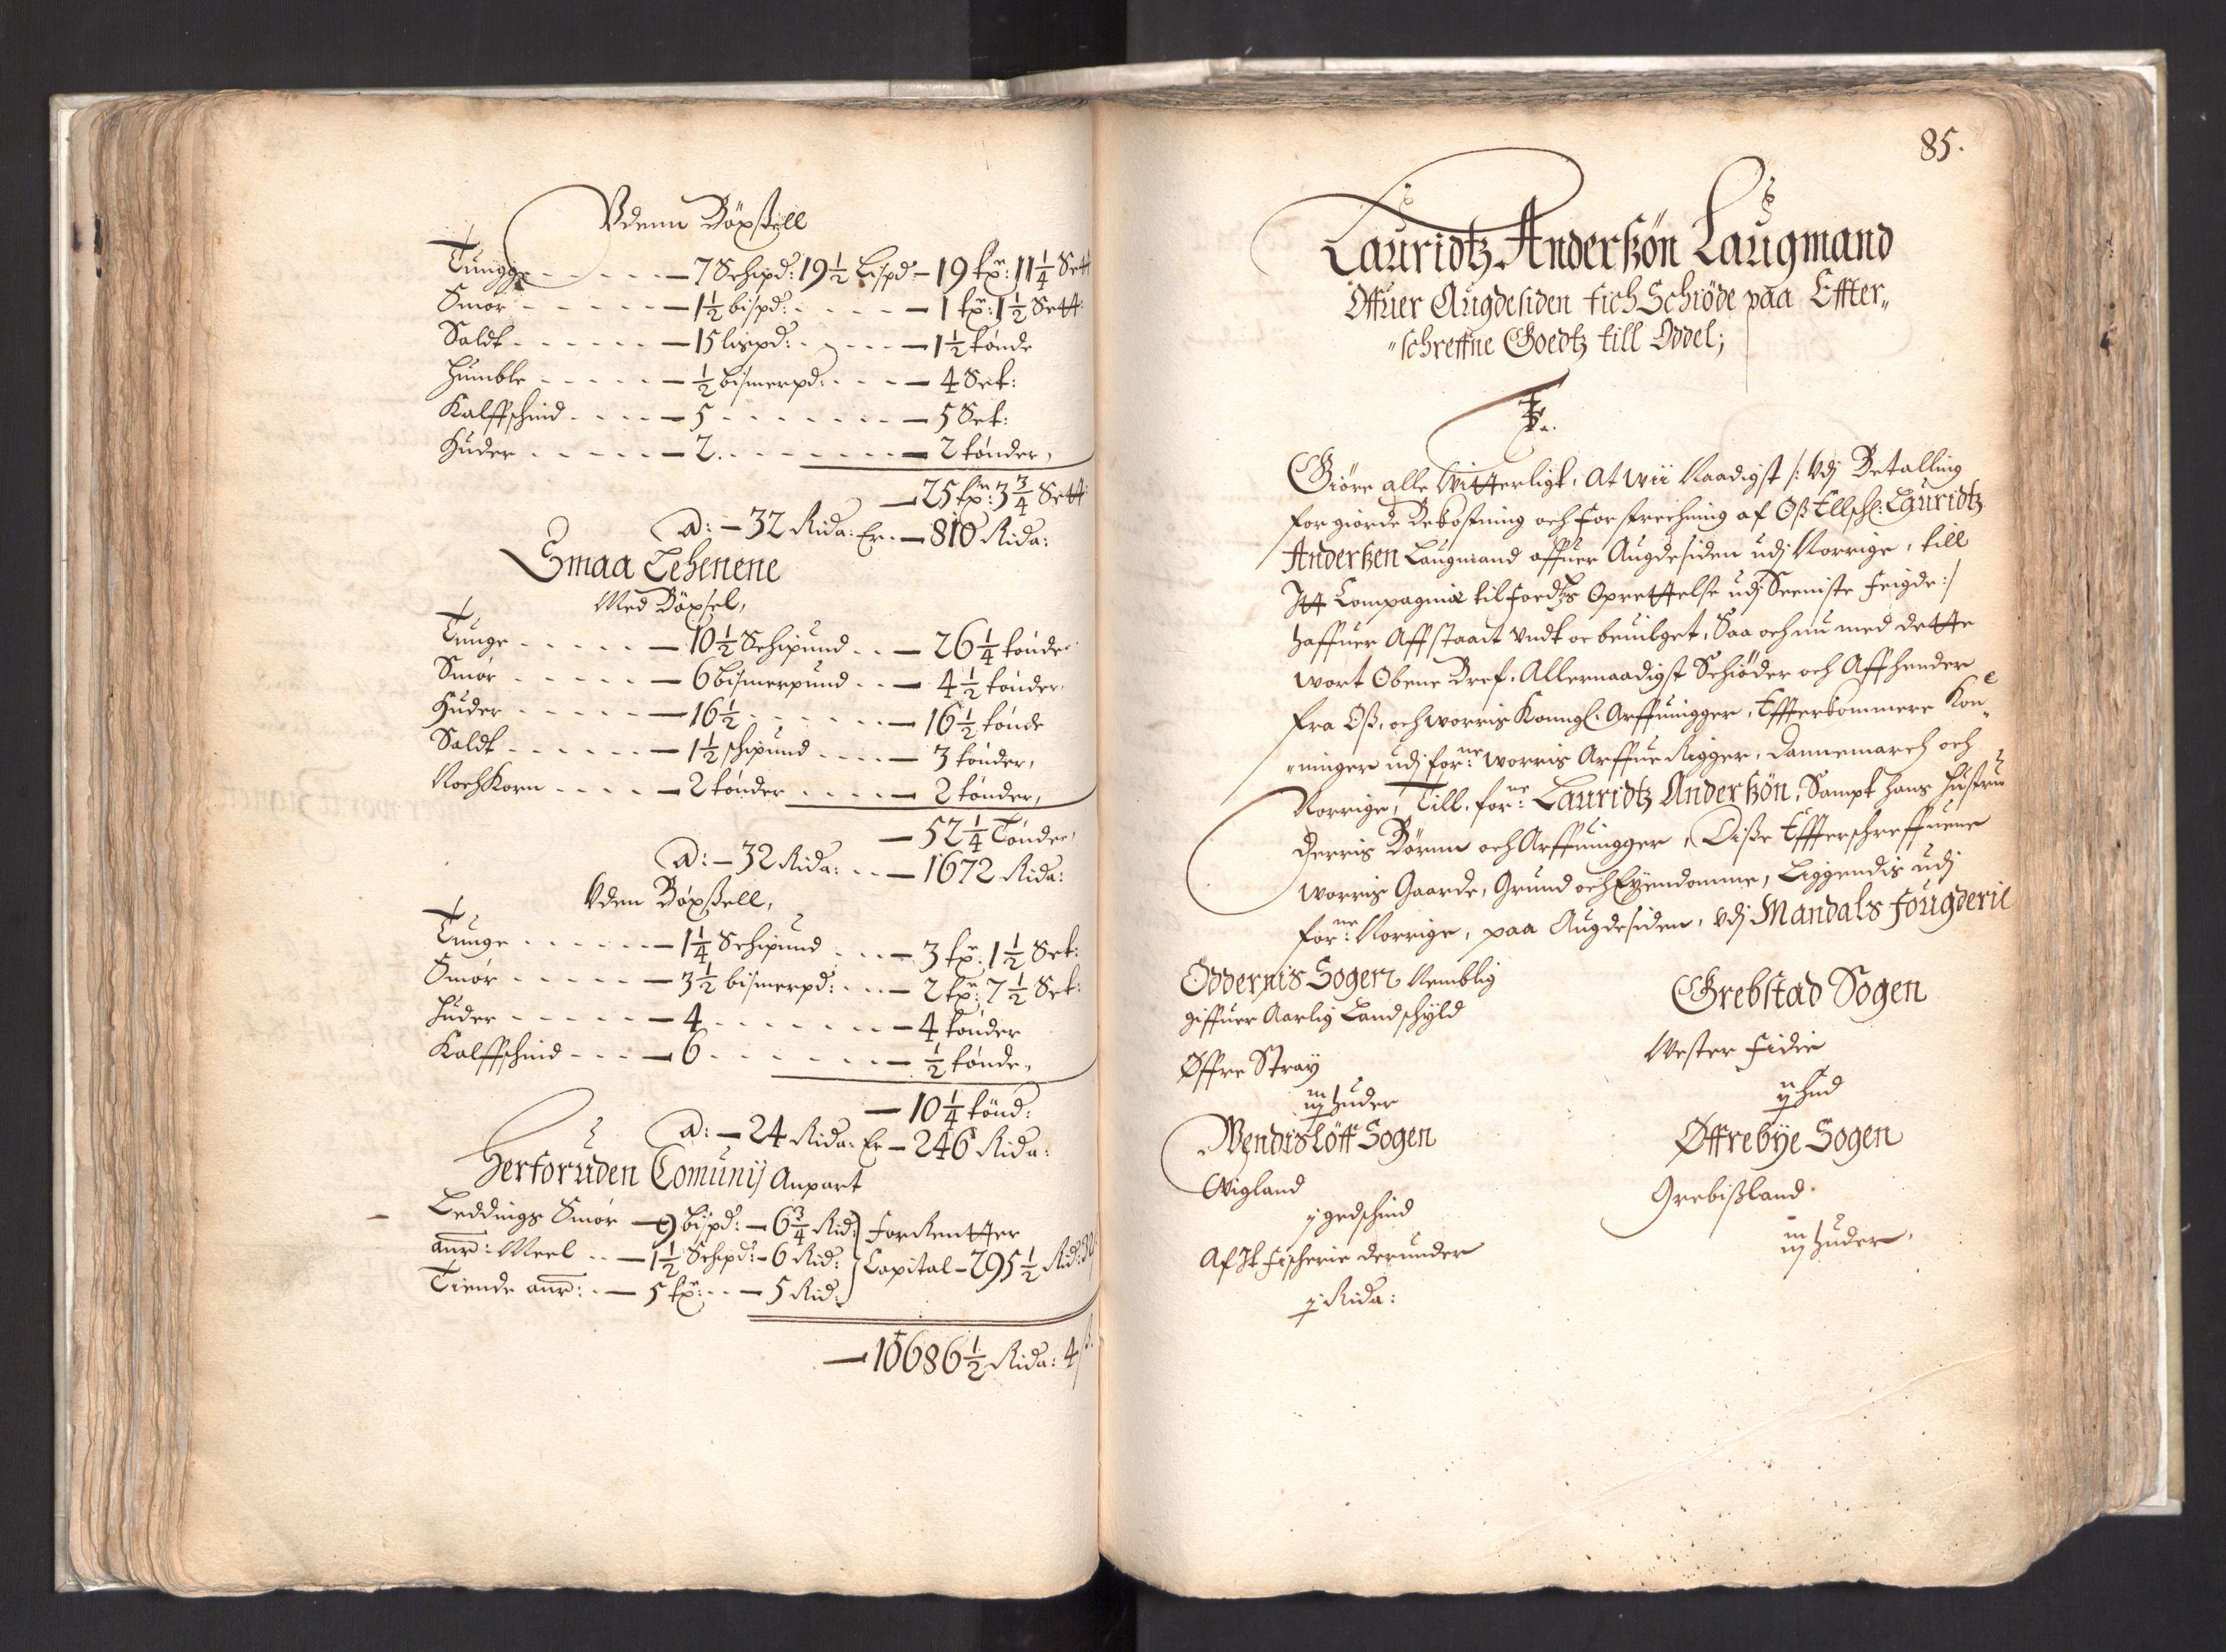 Vdenn Böxßell
Tungge - - - - - 7 Schipd: 19½ Lispd - 19 tr: 11¼ Sett
Smör - - - - - 1½ bispd: - - - - 1 tr: 1½ Sett
Saldt - - - - - 15 lispd: - - - - 1½ tönde
Humble - - - - - ½ bismerpd: - - - 4 Set:
Kalffschind - - - - 5 - - - - - - - 5 Set:
Huder - - - - - 2 - - - - - - - 2 tönder,
25 tr: 3¾ Sett
a: - 32 Rida: Er - 810 Rida:
Smaa Lehenene
Med Böxsel,
Tunge - - - - - 10½ Schipund - - 26¼ tönde
Smör - - - - - 6 bismerpund - - 4½ tönder
Huder - - - - - 16½ - - - - - - 16½ tönde
Saldt - - - - - 1½ schipund - - - - 3 tönder,
Roch Korn - - - - 2 tönder - - - - 2 tönder,
52¼ Tönder,
a: - 32 Rida: - - 1672 Rida:
Vden Böxßell,
Tunge - - - - - 1¼ Schipund - - - 3 tr: 1½ Set:
Smör - - - - - 3½ bismerpd: - - - 2 tr: 7½ Set:
Huder - - - - - 4 - - - - - - - 4 tönder
Kalffschind - - - 6 - - - - - - - ½ tönde,
10¼ tönd:
a: - 24 Rida: Er - 246 Rida:
Herforuden Comunij Anpart
Leddings Smör - 9 bispd: - 6¾ Rid: for Rentter
anr: Meel - - 1½ Schipd: - 6 Rid: Capital - 295½ Rid:
Tiende anr: - - 5 tr: - - 5 Rid:
10686½ Rida: 4 ß.
85.
Lauridtz Anderßön Laugmand
Offuer Augdesiden fich Schiöde paa Effter„
„schreffne Goedtz till Oddel;
F.
Giöre alle Witterligt, at wii Naadigst /: Vdj Betalling
for giorde Bekostning och forstrechning af Oß Ellschl: Lauridtz
Anderßen Laugmand offuer Augdesiden udj Norrige, till
Itt Compagniæ til foedtzs Oprettelse udj Seeniste Feigde :/
haffuer Affstaait vndt oc beuilget, Saa och nu med dette
wort Obene Bref, Allernaadigst Schiöder och Affhender
fra Oß, och worris Konngl: Arffuingger, Effterkommere Kon„
„ninger udj forne: worris Arffue Rigger, Dannemarch och
Norrige, Till forne: Lauridtz Anderßön, Sampt hans Hustru
Derris Börnn och Arffuingger, Diße Effterschreffnene
worris Gaarde, Grund och Eyendomme, Liggendis udj
forne: Norrige, paa Augdesiden, Vdj Mandals fougderie
Oddernis Sogen Nemblig
giffuer Aarlig Landschyld
Øffre Stray
iij Huder
Wendislöff Sogen
Wigland
j gedschind
Af It fischerie derunder
j Rida:
Grebstad Sogen
Wester Fidie
ij Hud
Øffrebye Sogen
Grebißland
iij Huder,